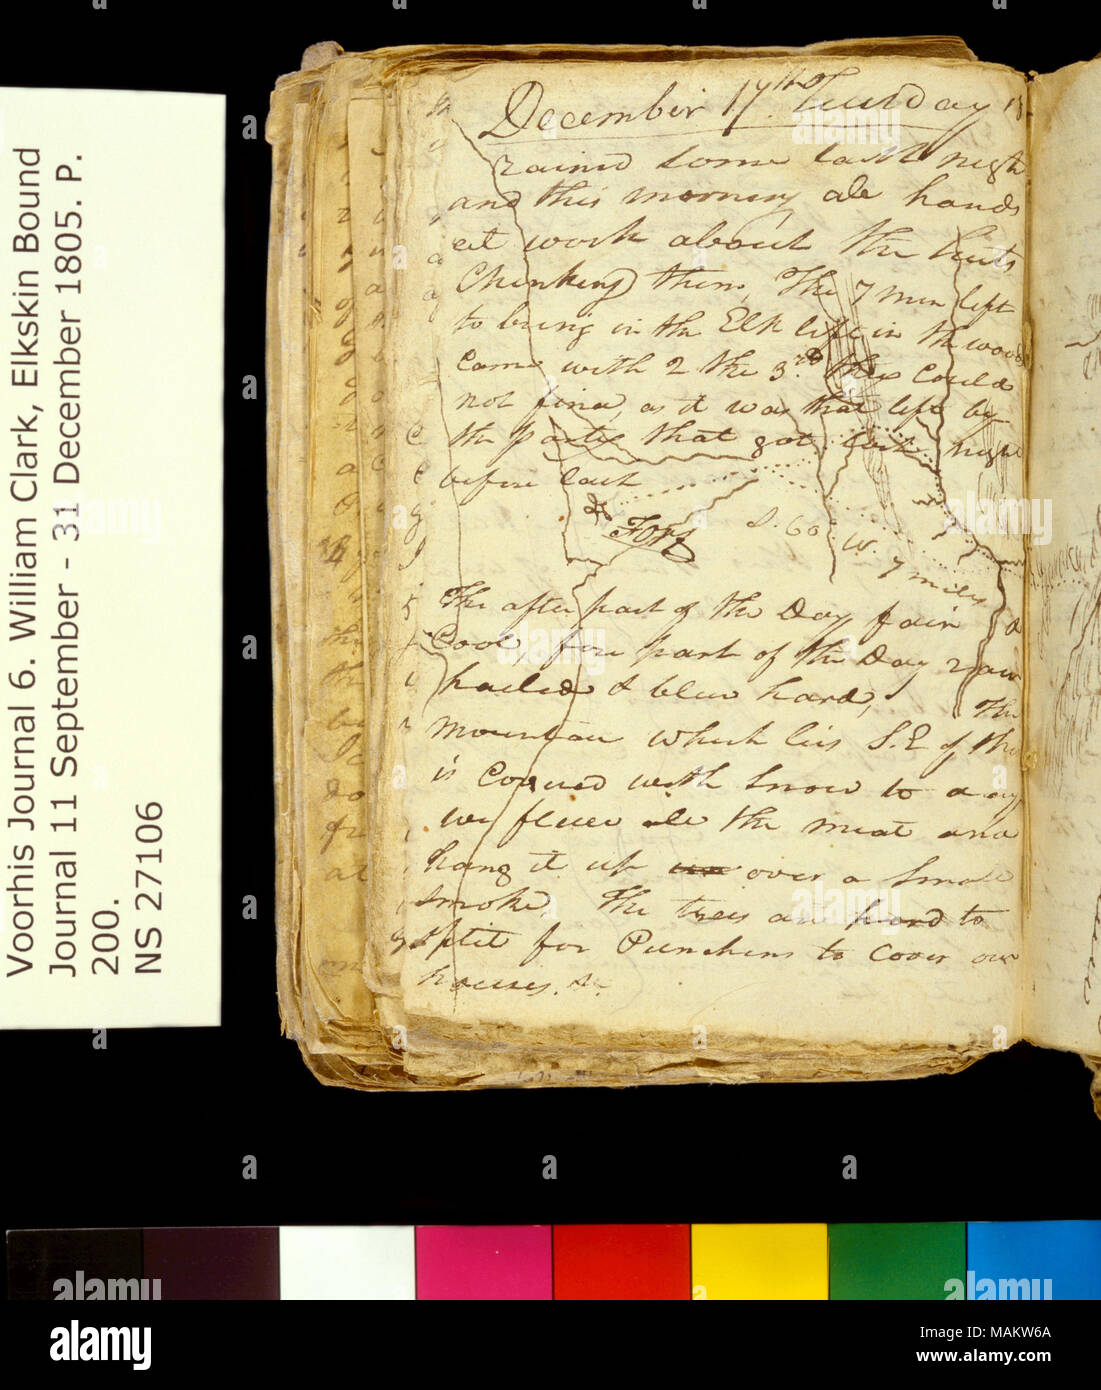 Voorhis Journal 6. William Clark, Elkskin Bound
Journal 11 September - 31 December 1805. P.
200.
NS 27106
December 17th Tuesday 18
rained Some last nigh
and this morning all hands
at work about the huts
Chinking them, The 7 men left
to bring in the Elk left in the woods
Came with 2 the 3rd they Could
not find, as it was that left by
the party that got lost night
before last
Fort
S. 60 W. 7 miles
The after part of the Day fair &
Cool, fore part of the Day rain
hailed & blew hard, The
mountain which lies S.E of this
is Covered with Snow to day
we fleece all the meat and
hang it up over a Small
Smoke, The trees are hard to
Split for Punchens to Cover our
houses. &c.
alamy
Image ID: MAKW6A
www.alamy.com